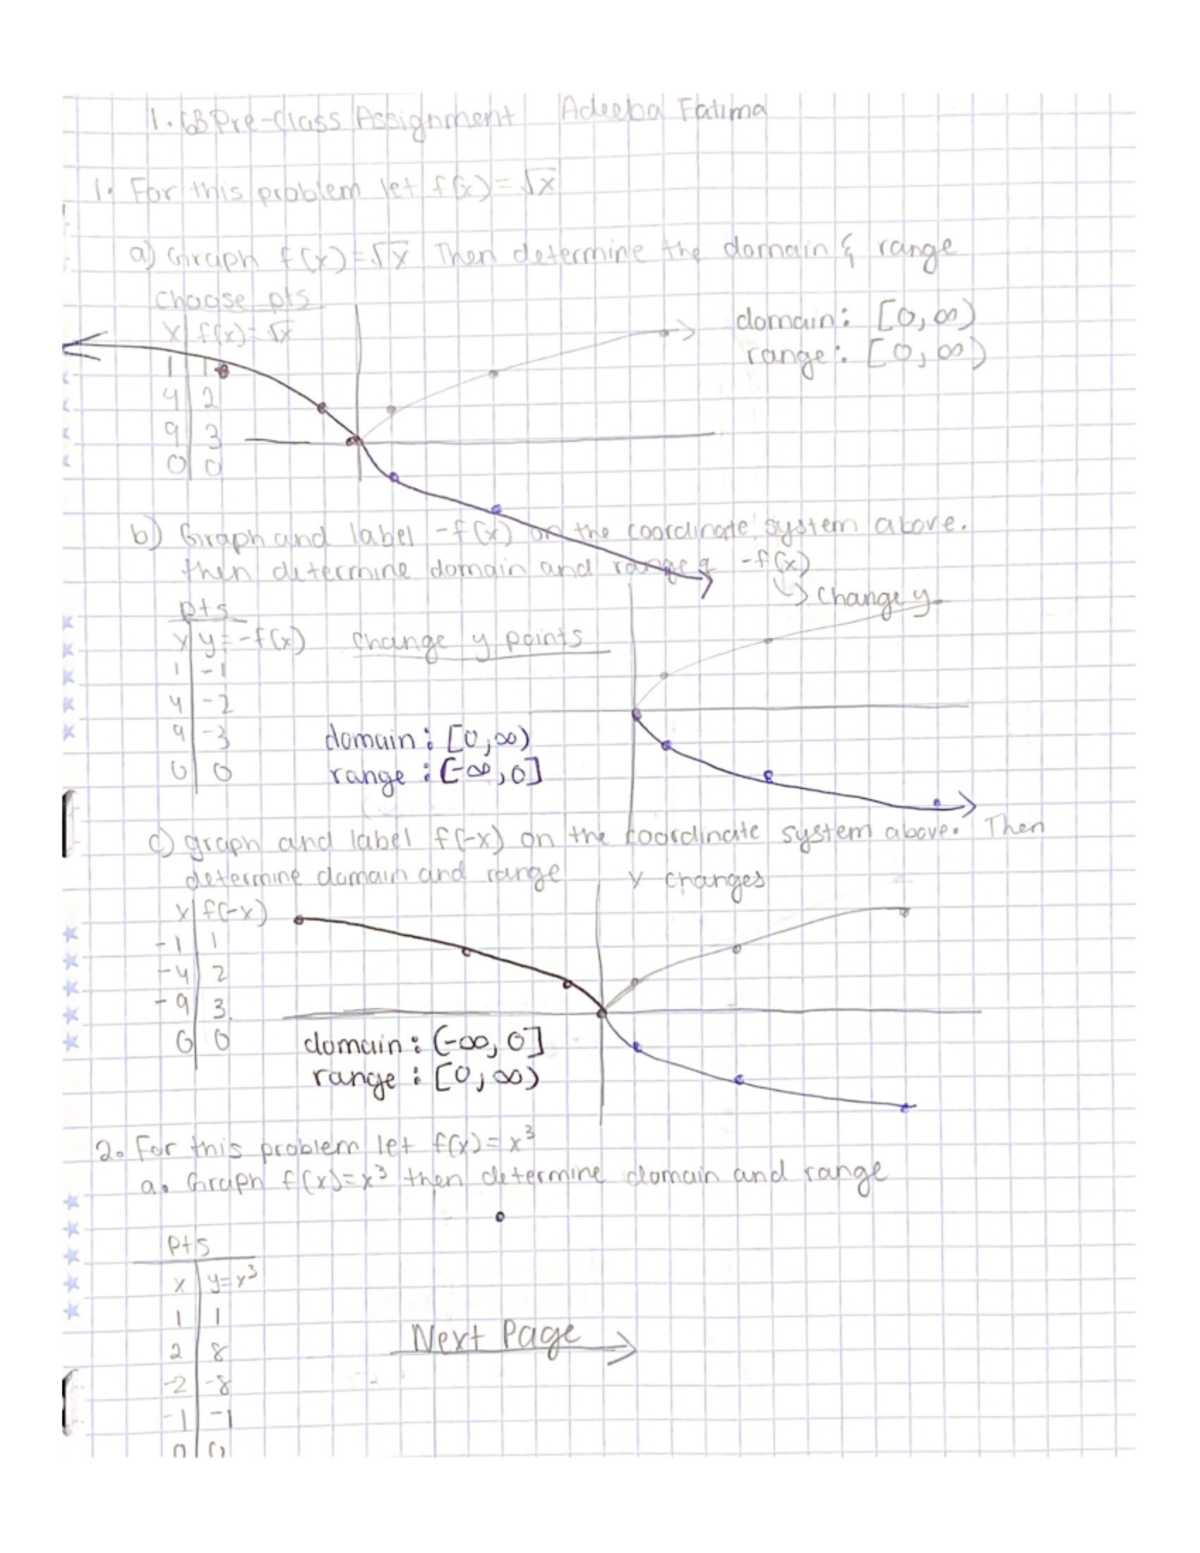 1.6B Pre-Class Assignment Adeeba Fatima
1. For this problem let f(x) = √x
a) Graph f(x) = √x Then determine the domain & range
choose pts
x f(x) = √x
1 1
4 2
9 3
0 0
domain: [0, ∞)
range: [0, ∞)
b) Graph and label -f(x) on the coordinate system above.
then determine domain and range -f(x)
↳ change y
pts
x y = -f(x) change y points
1 -1
4 -2
9 -3
0 0
domain: [0, ∞)
range: (-∞, 0]
c) graph and label f(-x) on the coordinate system above. Then
determine domain and range x changes
x f(-x)
-1 1
-4 2
-9 3
0 0
domain: (-∞, 0]
range: [0, ∞)
2. For this problem let f(x) = x³
a. Graph f(x) = x³ then determine domain and range
pts
x y = x³
1 1
2 8
-2 -8
-1 -1
0 0
Next Page →